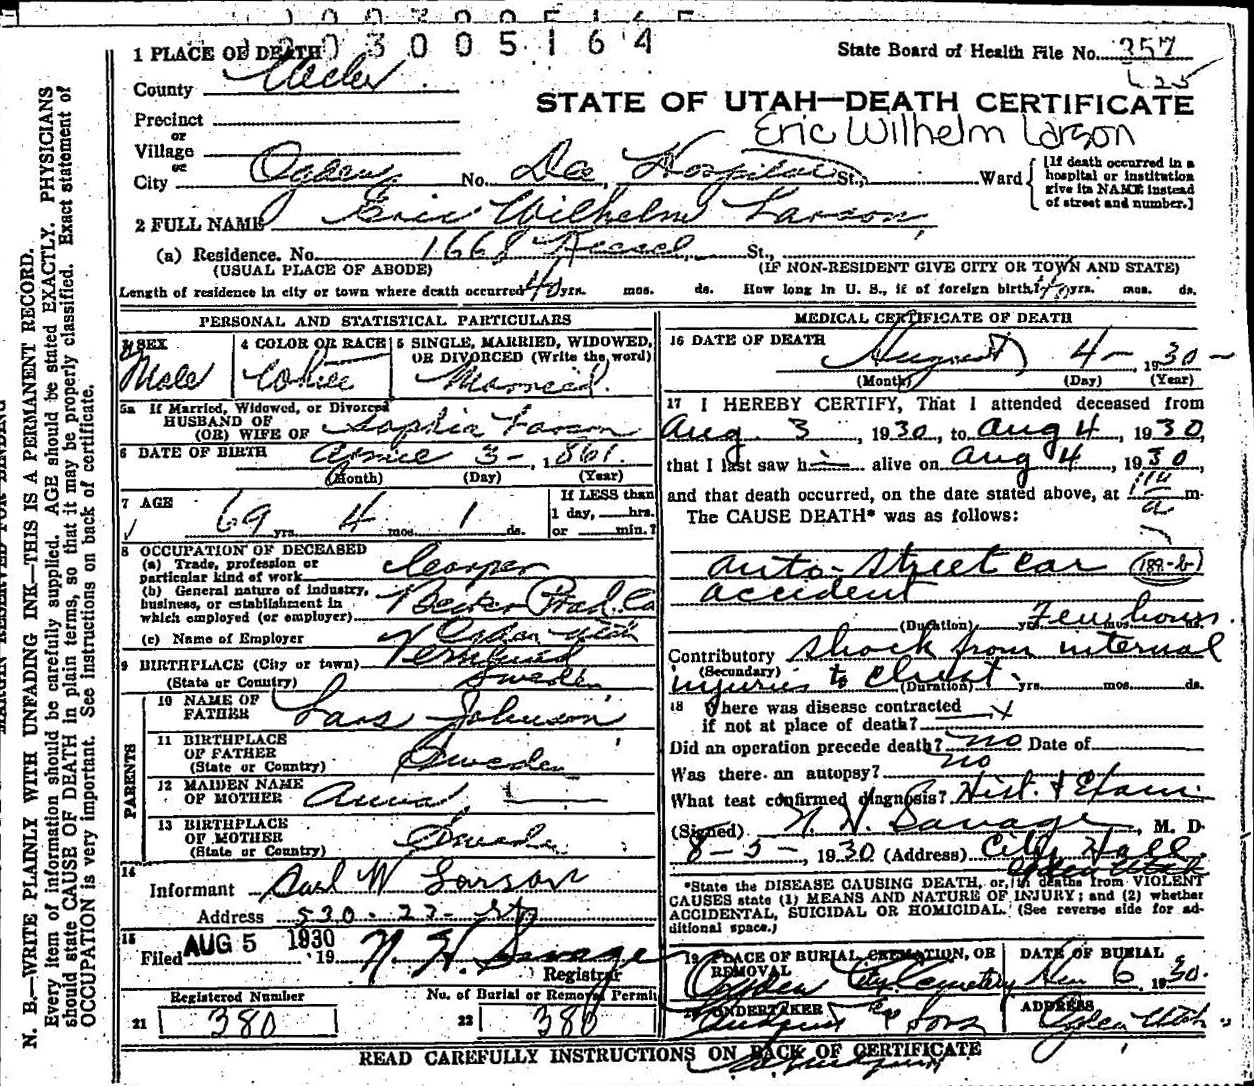 1 2 0 3 0 0 5 1 6 4
1 PLACE OF DEATH
State Board of Health File No. 357
County Weber
STATE OF UTAH—DEATH CERTIFICATE
Eric Wilhelm Larson
Precinct
or
Village
or
City Ogden, No. Dee Hospital St., Ward
[If death occurred in a
hospital or institution
give its NAME instead
of street and number.]
2 FULL NAME Eric Wilhelm Larson,
(a) Residence. No. 1668 St.,
(USUAL PLACE OF ABODE) (IF NON-RESIDENT GIVE CITY OR TOWN AND STATE)
Length of residence in city or town where death occurred 40 yrs. mos. ds. How long in U. S., if of foreign birth? 40 yrs. mos. ds.
PERSONAL AND STATISTICAL PARTICULARS
3 SEX
Male
4 COLOR OR RACE
White
5 SINGLE, MARRIED, WIDOWED,
OR DIVORCED (Write the word)
Married.
5a If Married, Widowed, or Divorced
HUSBAND OF
(OR) WIFE OF Sophia Larson
6 DATE OF BIRTH 3-, 1861.
(Month) (Day) (Year)
7 AGE
69 yrs. 4 mos. 1 ds.
If LESS than
1 day, hrs.
or min.?
8 OCCUPATION OF DECEASED
(a) Trade, profession or
particular kind of work Cooper
(b) General nature of industry,
business, or establishment in
which employed (or employer) Becker Prod. Co
(c) Name of Employer Ogden Utah
9 BIRTHPLACE (City or town)
(State or Country) Sweden
PARENTS
10 NAME OF
FATHER Lars Johnson
11 BIRTHPLACE
OF FATHER
(State or Country) Sweden
12 MAIDEN NAME
OF MOTHER Anna
13 BIRTHPLACE
OF MOTHER
(State or Country) Sweden
14
Informant Carl W Larson
Address 530-22- St
15
Filed AUG 5 1930 19 N. H. Savage
Registrar
Registered Number
21 380
No. of Burial or Removal Permit
22 380
MEDICAL CERTIFICATE OF DEATH
16 DATE OF DEATH
August 4-, 1930-
(Month) (Day) (Year)
17 I HEREBY CERTIFY, That I attended deceased from
Aug. 3, 1930, to Aug 4, 1930,
that I last saw h alive on Aug 4, 1930
and that death occurred, on the date stated above, at m.
The CAUSE DEATH* was as follows:
auto-street car (188-b)
accident
(Duration) yrs. Few hours.
Contributory Shock from internal
(Secondary)
injuries to chest.
(Duration) yrs. mos. ds.
18 Where was disease contracted
if not at place of death?
Did an operation precede death? no Date of
Was there an autopsy? no
What test confirmed diagnosis? Hist. & Exam.
(Signed) N. H. Savage, M. D.
8-5-, 1930 (Address) City Hall.
Ogden Utah
*State the DISEASE CAUSING DEATH, or, in deaths from VIOLENT
CAUSES state (1) MEANS AND NATURE OF INJURY; and (2) whether
ACCIDENTAL, SUICIDAL OR HOMICIDAL. (See reverse side for ad-
ditional space.)
19 PLACE OF BURIAL, CREMATION, OR
REMOVAL
Ogden City Cemetery
DATE OF BURIAL
6 1930.
20 UNDERTAKER
& Sons
ADDRESS
Ogden Utah
READ CAREFULLY INSTRUCTIONS ON BACK OF CERTIFICATE
MARGIN RESERVED FOR BINDING
N. B.—WRITE PLAINLY WITH UNFADING INK—THIS IS A PERMANENT RECORD.
Every item of information should be carefully supplied. AGE should be stated EXACTLY. PHYSICIANS
should state CAUSE OF DEATH in plain terms, so that it may be properly classified. Exact statement of
OCCUPATION is very important. See instructions on back of certificate.